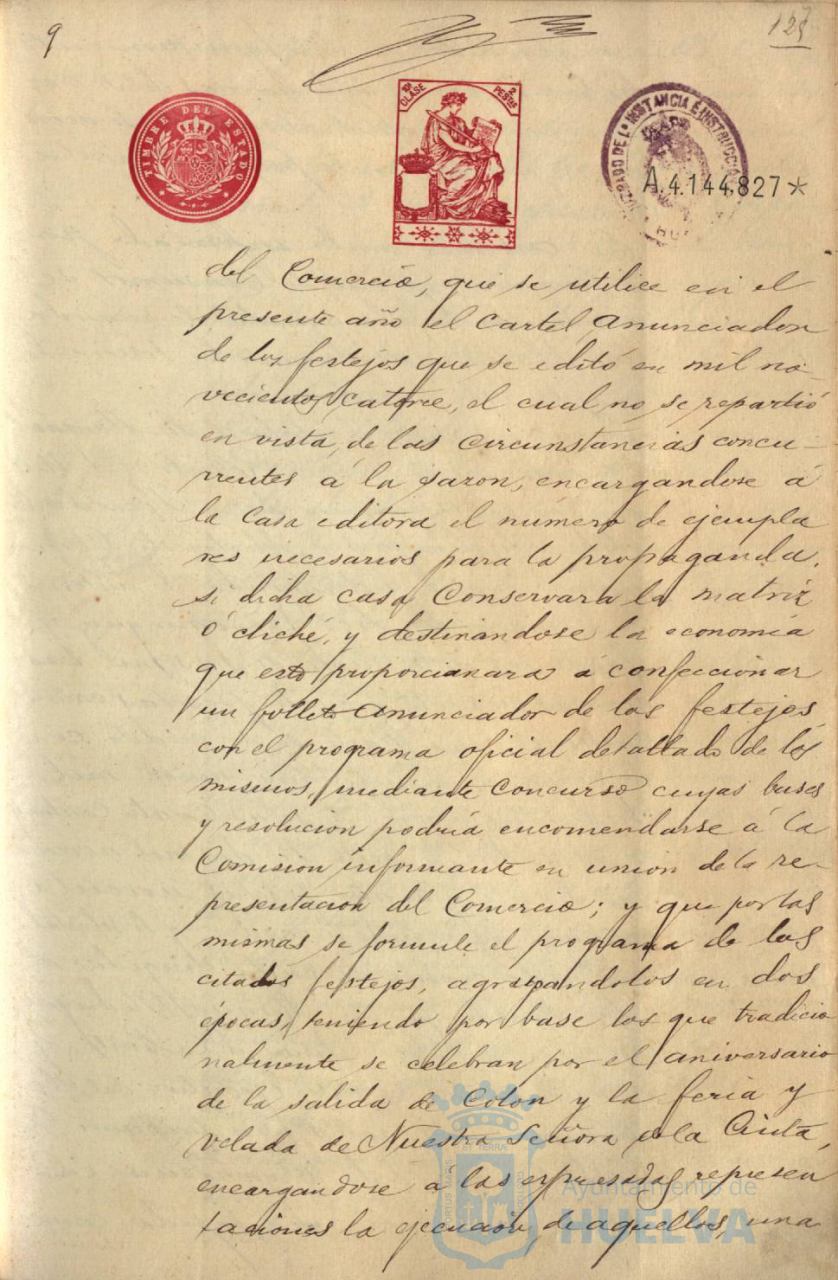 9
127
TIMBRE DEL ESTADO
10ª CLASE
2 PESETAS
JUZGADO DE 1ª INSTANCIA É INSTRUCCIÓN
A.4.144.827*
del Comercio, que se utilice en el
presente año el cartel anunciador
de los festejos que se editó en mil no-
vecientos catorce, el cual no se repartió
en vista de las circunstancias concu-
rrentes á la sazon, encargandose á
la Casa editora el número de ejempla
res necesarios para la propaganda,
si dicha casa conservara la matriz
ó cliché, y destinándose la economía
que esto proporcionara á confeccionar
un folleto anunciador de los festejos
con el programa oficial detallado de los
mismos, mediante concurso cuyas bases
y resolucion podría encomendarse á la
Comision informante en union de la re-
presentacion del Comercio; y que por las
mismas se formule el programa de los
citados festejos, agrupandolos en dos
épocas, teniendo por base los que tradicio
nalmente se celebran por el aniversario
de la salida de Colon y la feria y
velada de Nuestra Señora de la Cinta,
encargandose á las expresadas represen
taciones la ejecucion de aquellos, una
Ayuntamiento de
HUELVA